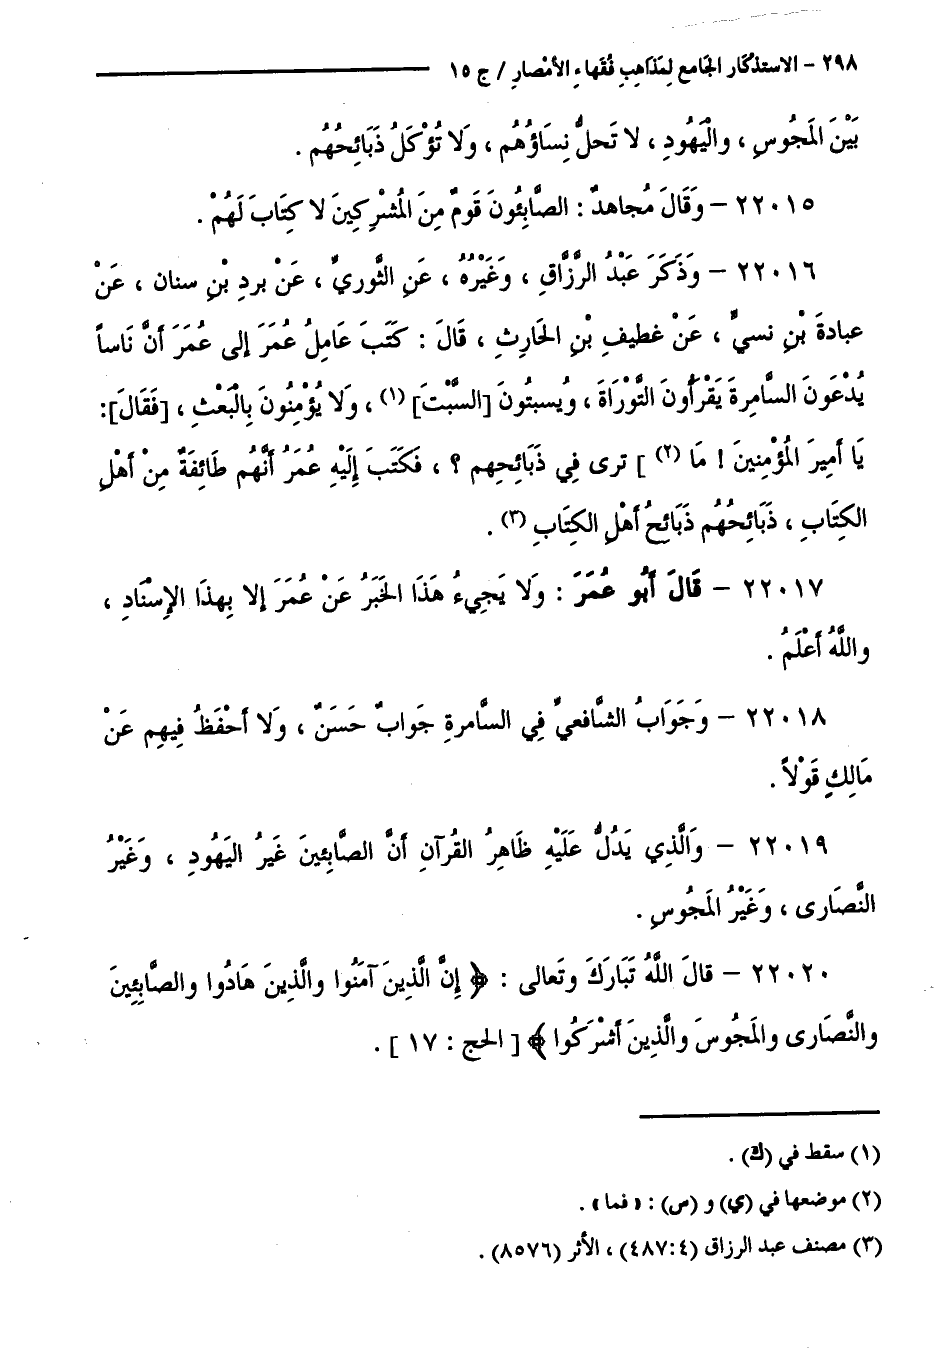 ٢٩٨ – الاستذْكَار الجَامع لِمَذَاهِبِ فُقَهاءِ الأَمْصارِ / ج ١٥
بَيْنَ المَجُوسِ ، والْيَهُودِ ، لا تَحلُّ نِسَاؤُهُم ، وَلا تُؤْكَلُ ذَبَائِحُهُم .
٢٢٠١٥ – وَقَالَ مُجاهدٌ : الصَّابِئُونَ قَومٌ مِنَ المُشْرِكِينَ لا كِتَابَ لَهُمْ .
٢٢٠١٦ – وَذَكَرَ عَبْدُ الرَّزَّاقِ ، وَغَيْرُهُ ، عَنِ الثَّوريِّ ، عَنْ بردِ بْنِ سنان ، عَنْ
عبادةَ بْنِ نسيٍّ ، عَنْ غطيفِ بْنِ الحَارِثِ ، قَالَ : كَتَبَ عَامِلُ عُمَرَ إلى عُمَرَ أَنَّ نَاساً
يُدْعَونَ السَّامِرةَ يَقْرَأُونَ التَّوْرَاةَ ، ويُسبتُونَ [السَّبْتَ] (١) ، وَلا يُؤْمِنُونَ بِالْبَعْثِ ، [فَقَالَ]:
يَا أَمِيرَ المُؤْمِنينَ ! مَا (٢) ] ترى فِي ذَبَائِحِهم ؟ ، فَكَتَبَ إِلَيْهِ عُمَرُ أَنَّهُم طَائِفَةٌ مِنْ أهْلِ
الكِتَابِ ، ذَبَائِحُهُم ذَبَائِحُ أهْلِ الكِتَابِ (٣) .
٢٢٠١٧ – قَالَ أَبُو عُمَرَ : وَلا يَجِيءُ هَذَا الخَبَرُ عَنْ عُمَرَ إلا بِهذَا الإِسْنَادِ ،
واللَّهُ أَعْلَمُ .
٢٢٠١٨ – وَجَوَابُ الشَّافعيِّ فِي السَّامرةِ جَوابٌ حَسَنٌ ، وَلا أَحْفَظُ فِيهِم عَنْ
مَالِكٍ قَوْلاً .
٢٢٠١٩ – وَالَّذِي يَدُلُّ عَلَيْهِ ظَاهِرُ القُرآنِ أَنَّ الصَّابِئينَ غَيرُ اليَهُودِ ، وَغَيْرُ
النَّصَارى ، وَغَيْرُ المَجُوسِ .
٢٢٠٢٠ – قالَ اللَّهُ تَبَارَكَ وتَعالى : ﴿ إِنَّ الَّذِينَ آمَنُوا والَّذِينَ هَادُوا والصَّابِئِينَ
والنَّصَارى والمَجُوسَ والَّذِينَ أَشْرَكُوا ﴾ [ الحج : ١٧ ] .
(١) سقط في (ك) .
(٢) موضعها في (ي) و (س) : « فما » .
(٣) مصنف عبد الرزاق (٤:٤٨٧) ، الأثر (٨٥٧٦) .